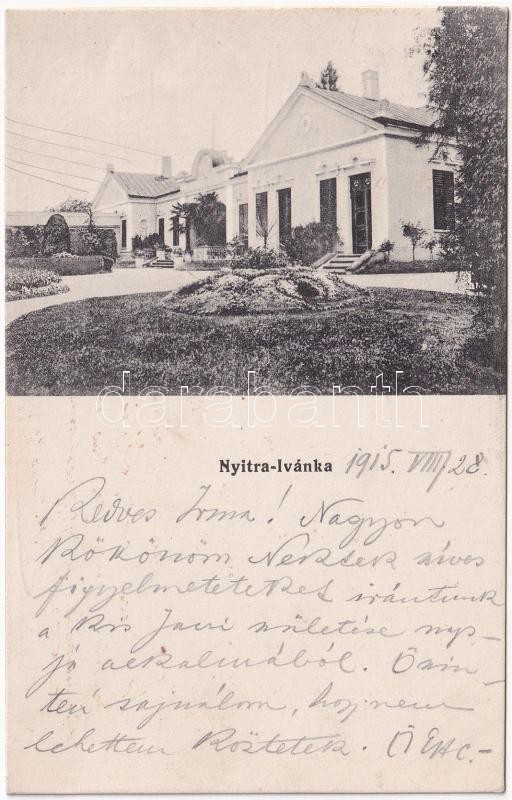 darabanth
Nyitra-Ivánka 1915. VIII/28.
Kedves Irma! Nagyon
köszönöm Nektek szíves
figyelmeteteket irántunk
a kis Jacsi születése nap-
ja alkalmából. Őszin-
tén sajnálom, hogy nem
lehettem köztetek.